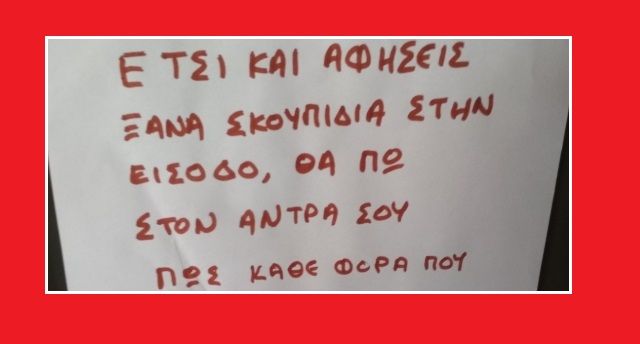 ΕΤΣΙ ΚΑΙ ΑΦΗΣΕΙΣ
ΞΑΝΑ ΣΚΟΥΠΙΔΙΑ ΣΤΗΝ
ΕΙΣΟΔΟ, ΘΑ ΠΩ
ΣΤΟΝ ΑΝΤΡΑ ΣΟΥ
ΠΩΣ ΚΑΘΕ ΦΟΡΑ ΠΟΥ